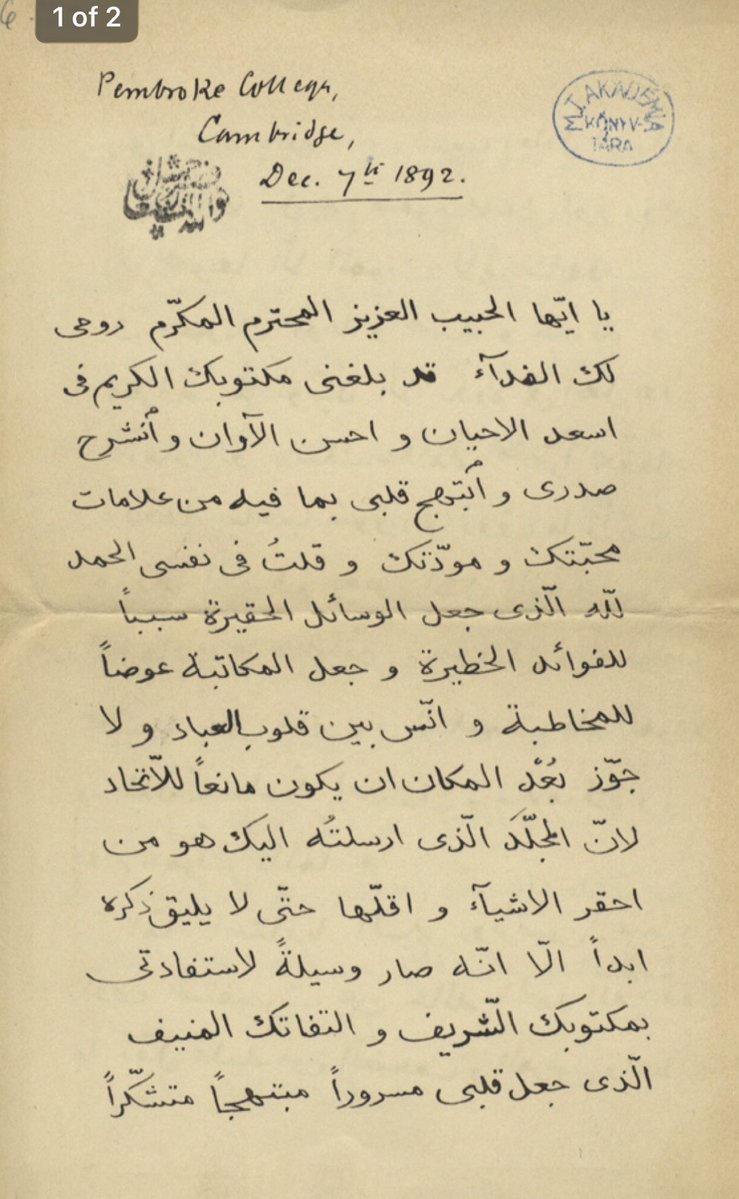 1 of 2
Pembroke College,
Cambridge,
Dec. 7th 1892.
M.T. AKADEMIA
KÖNYV-
TÁRA
يا ايّها الحبيب العزيز المحترم المكرّم روحى
لك الفدآء قد بلغنى مكتوبك الكريم فى
اسعد الاحيان و احسن الآوان و اُنشرح
صدرى و اُبتهج قلبى بما فيه من علامات
محبّتك و مودّتك و قلتُ فى نفسى الحمد
للّه الّذى جعل الوسائل الحقيرة سبباً
للفوائد الخطيرة و جعل المكاتبة عوضاً
للمخاطبة و انّس بين قلوب العباد و لا
جوّز بُعْد المكان ان يكون مانعاً للاّتحاد
لانّ المجلّدَ الّذى ارسلتُه اليك هو من
احقر الاشيآء و اقلّها حتّى لا يليق ذكره
ابداً الّا انّه صار وسيلةً لاستفادتى
بمكتوبك الشّريف و التفاتك المنيف
الّذى جعل قلبى مسروراً مبتهجاً متشكّراً